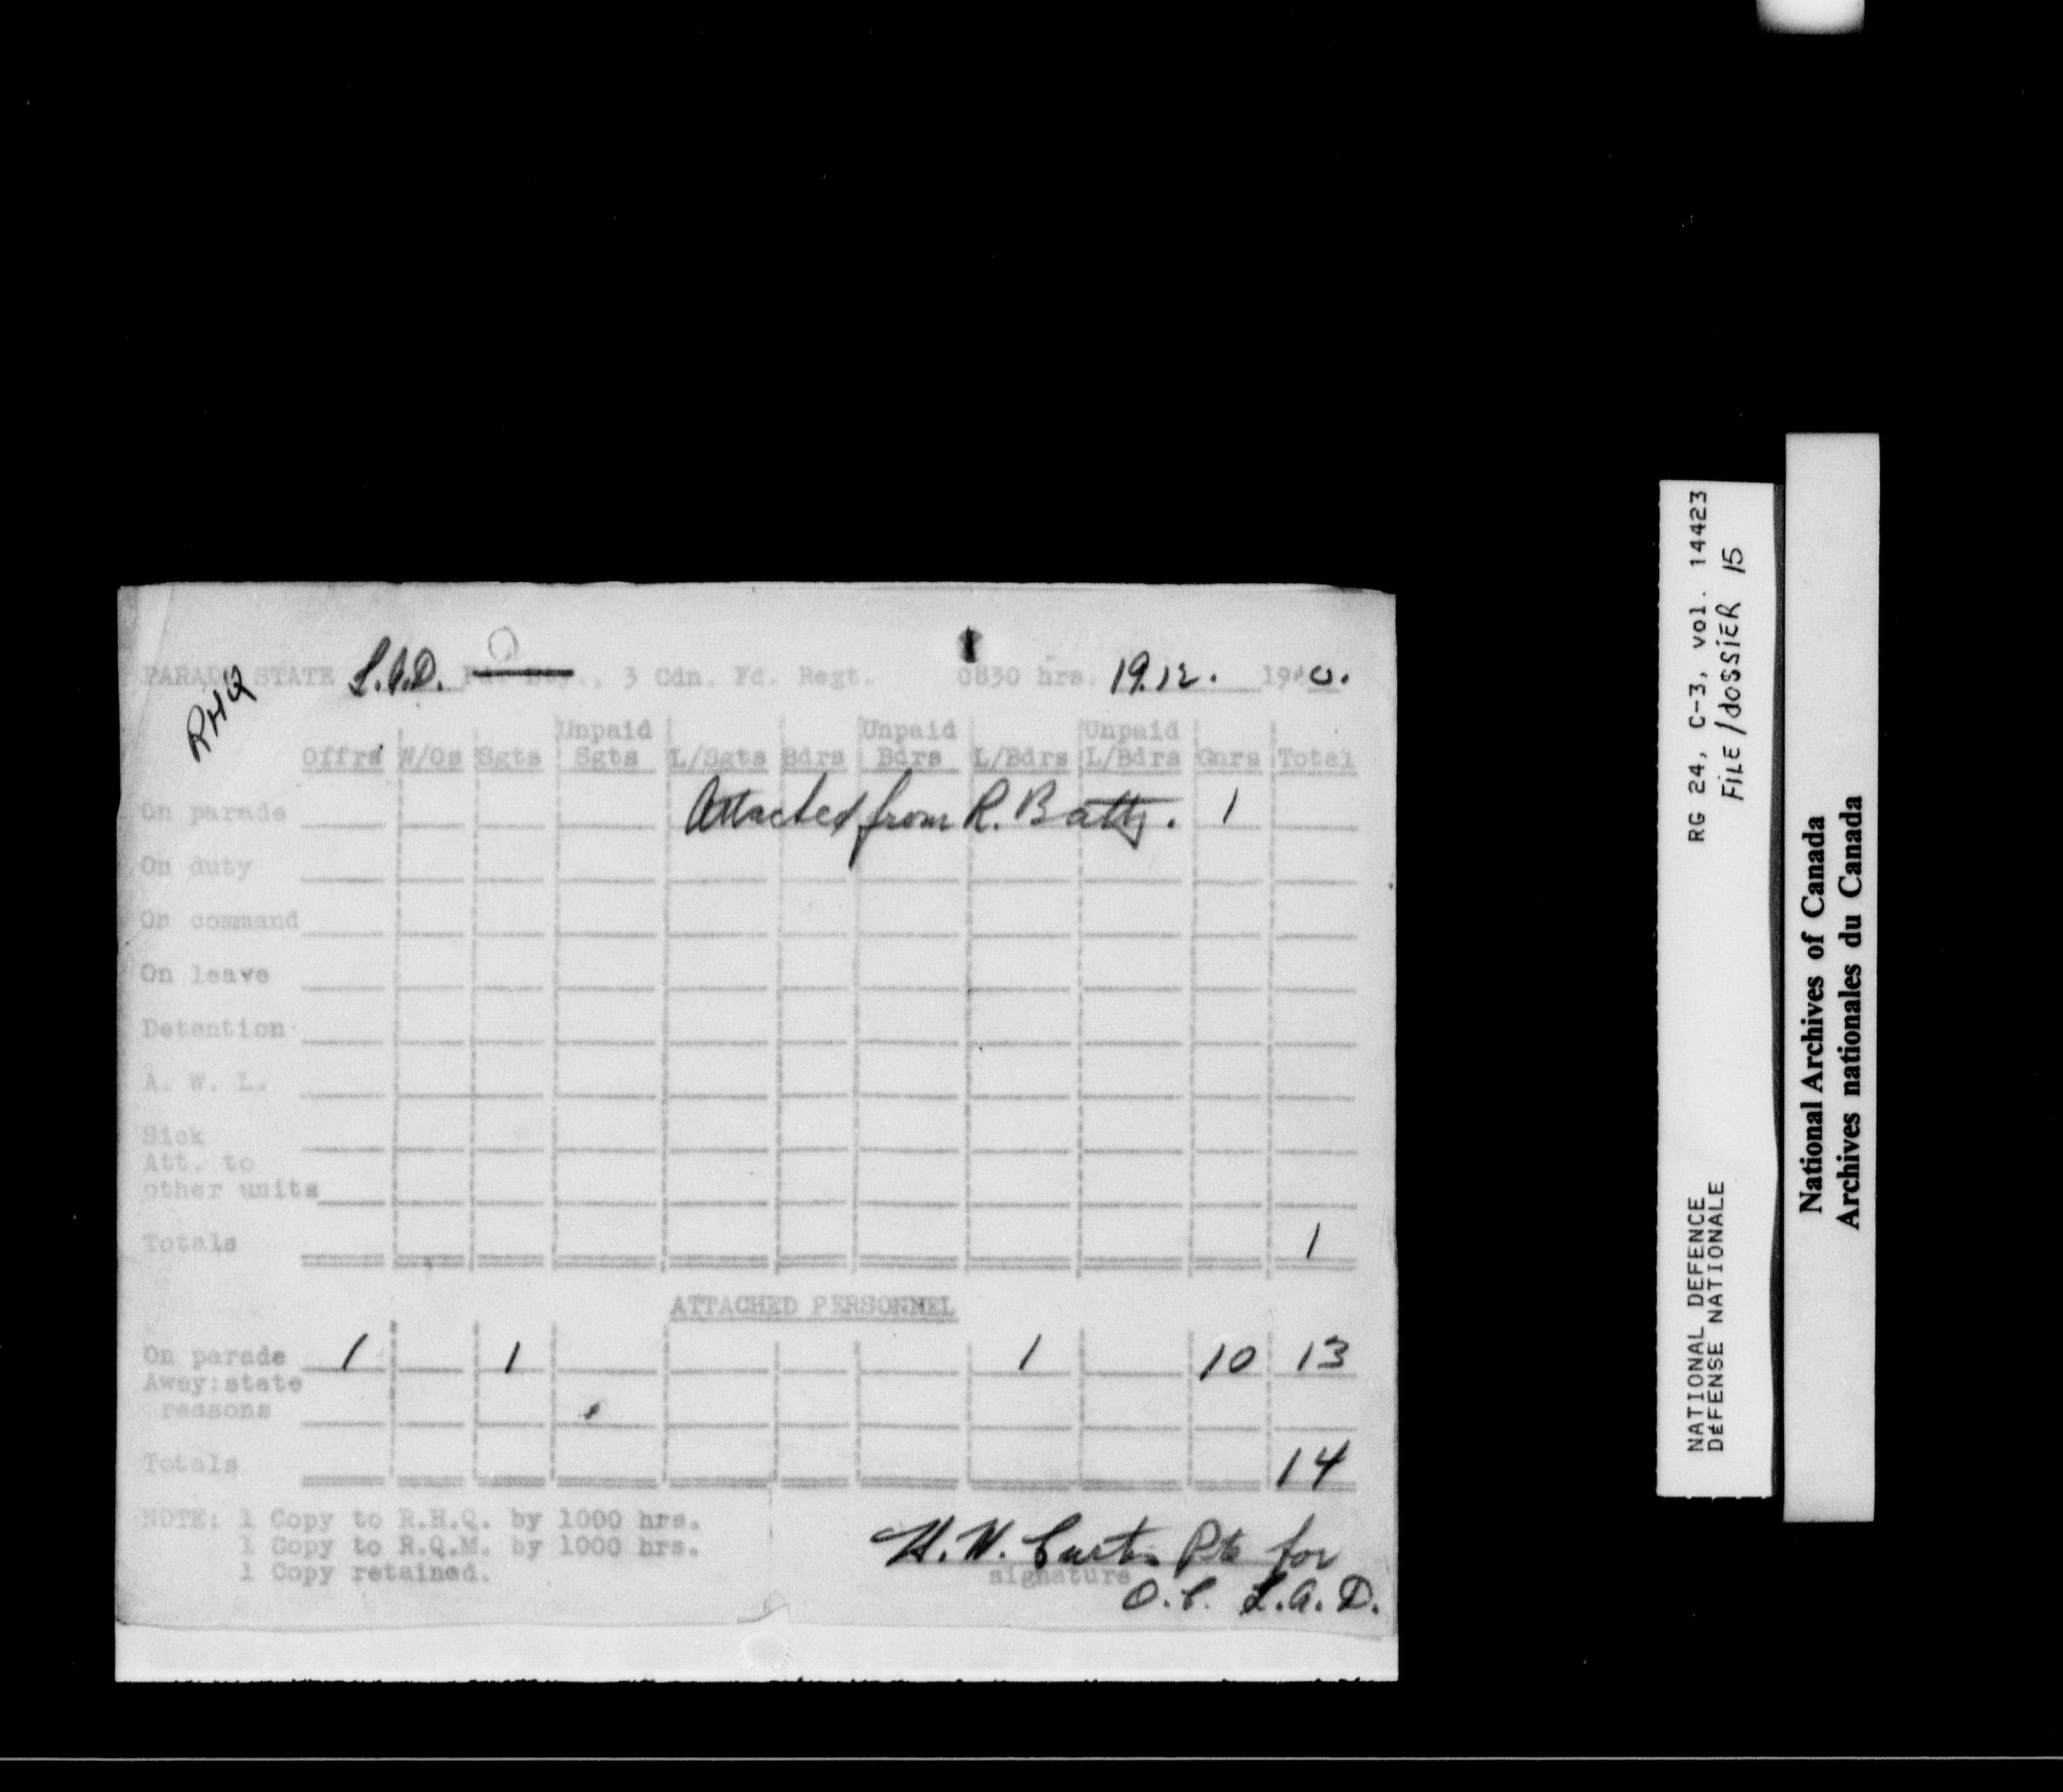 PARADE STATE L.A.D. Fd. Bty., 3 Cdn. Fd. Regt. 0830 hrs. 19.12. 1940.
RHQ
Unpaid Unpaid Unpaid
Offrs W/Os Sgts Sgts L/Sgts Bdrs Bdrs L/Bdrs L/Bdrs Gnrs Total
On parade Attached from R. Batty. 1
On duty
On command
On leave
Detention
A. W. L.
Sick
Att. to
other units
Totals 1
ATTACHED PERSONNEL
On parade 1 1 1 10 13
Away:state
reasons
Totals 14
NOTE: 1 Copy to R.H.Q. by 1000 hrs.
1 Copy to R.Q.M. by 1000 hrs.
1 Copy retained.
H. W. Curtis Pte for
signature
O.C. L.A.D.
RG 24, C-3, vol. 14423
FILE/dOSSiER 15
NATIONAL DEFENCE
DéFENSE NATIONALE
National Archives of Canada
Archives nationales du Canada